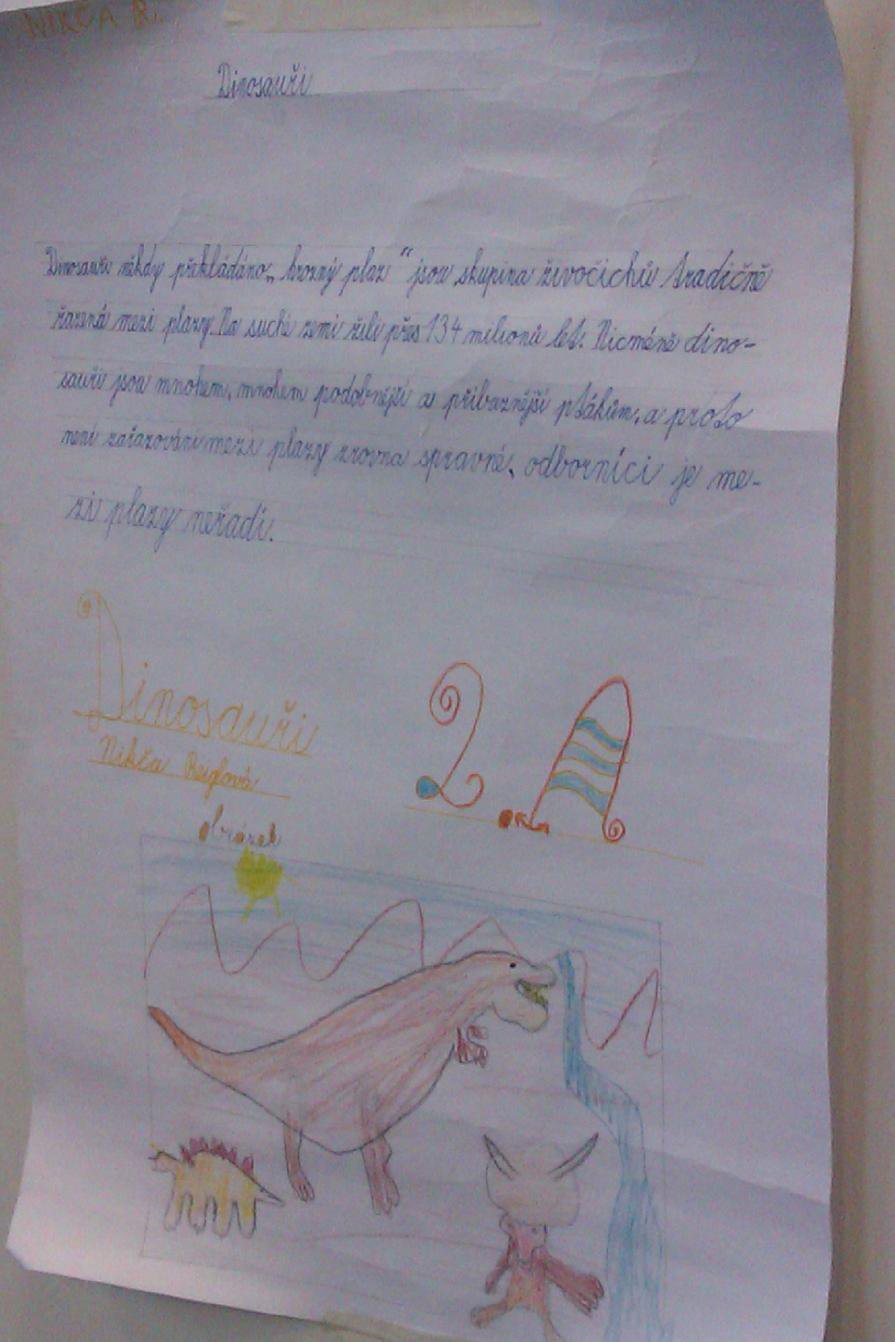 NIKČA R.
Dinosauři
Dinosauři někdy překládáno„ hrozný plaz “ jsou skupina živočichů tradičně
řazená mezi plazy. Na suché zemi žili přes 134 milionů let. Nicméně dino-
sauři jsou mnohem, mnohem podobnější a příbuznější ptákům, a proto
není zařazování mezi plazy zrovna správné, odborníci je me-
zi plazy neřadí.
Dinosauři
2.A
Nikča
obrázek